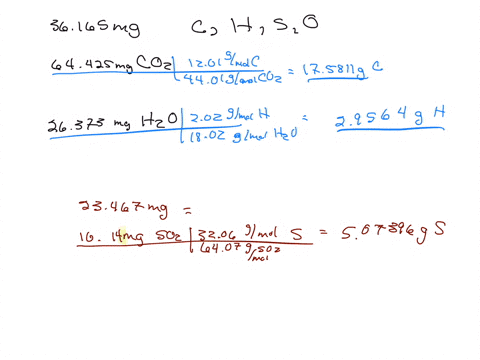 36.165mg C, H, S, O
64.425mg CO2 | 12.01 g/mol C / 44.01 g/mol CO2 = 17.5811g C
26.373 mg H2O | 2.02 g/mol H / 18.02 g/mol H2O = 2.9564 g H
23.467mg =
10.14mg SO2 | 32.06 g/mol S / 64.07 g/mol SO2 = 5.07396g S